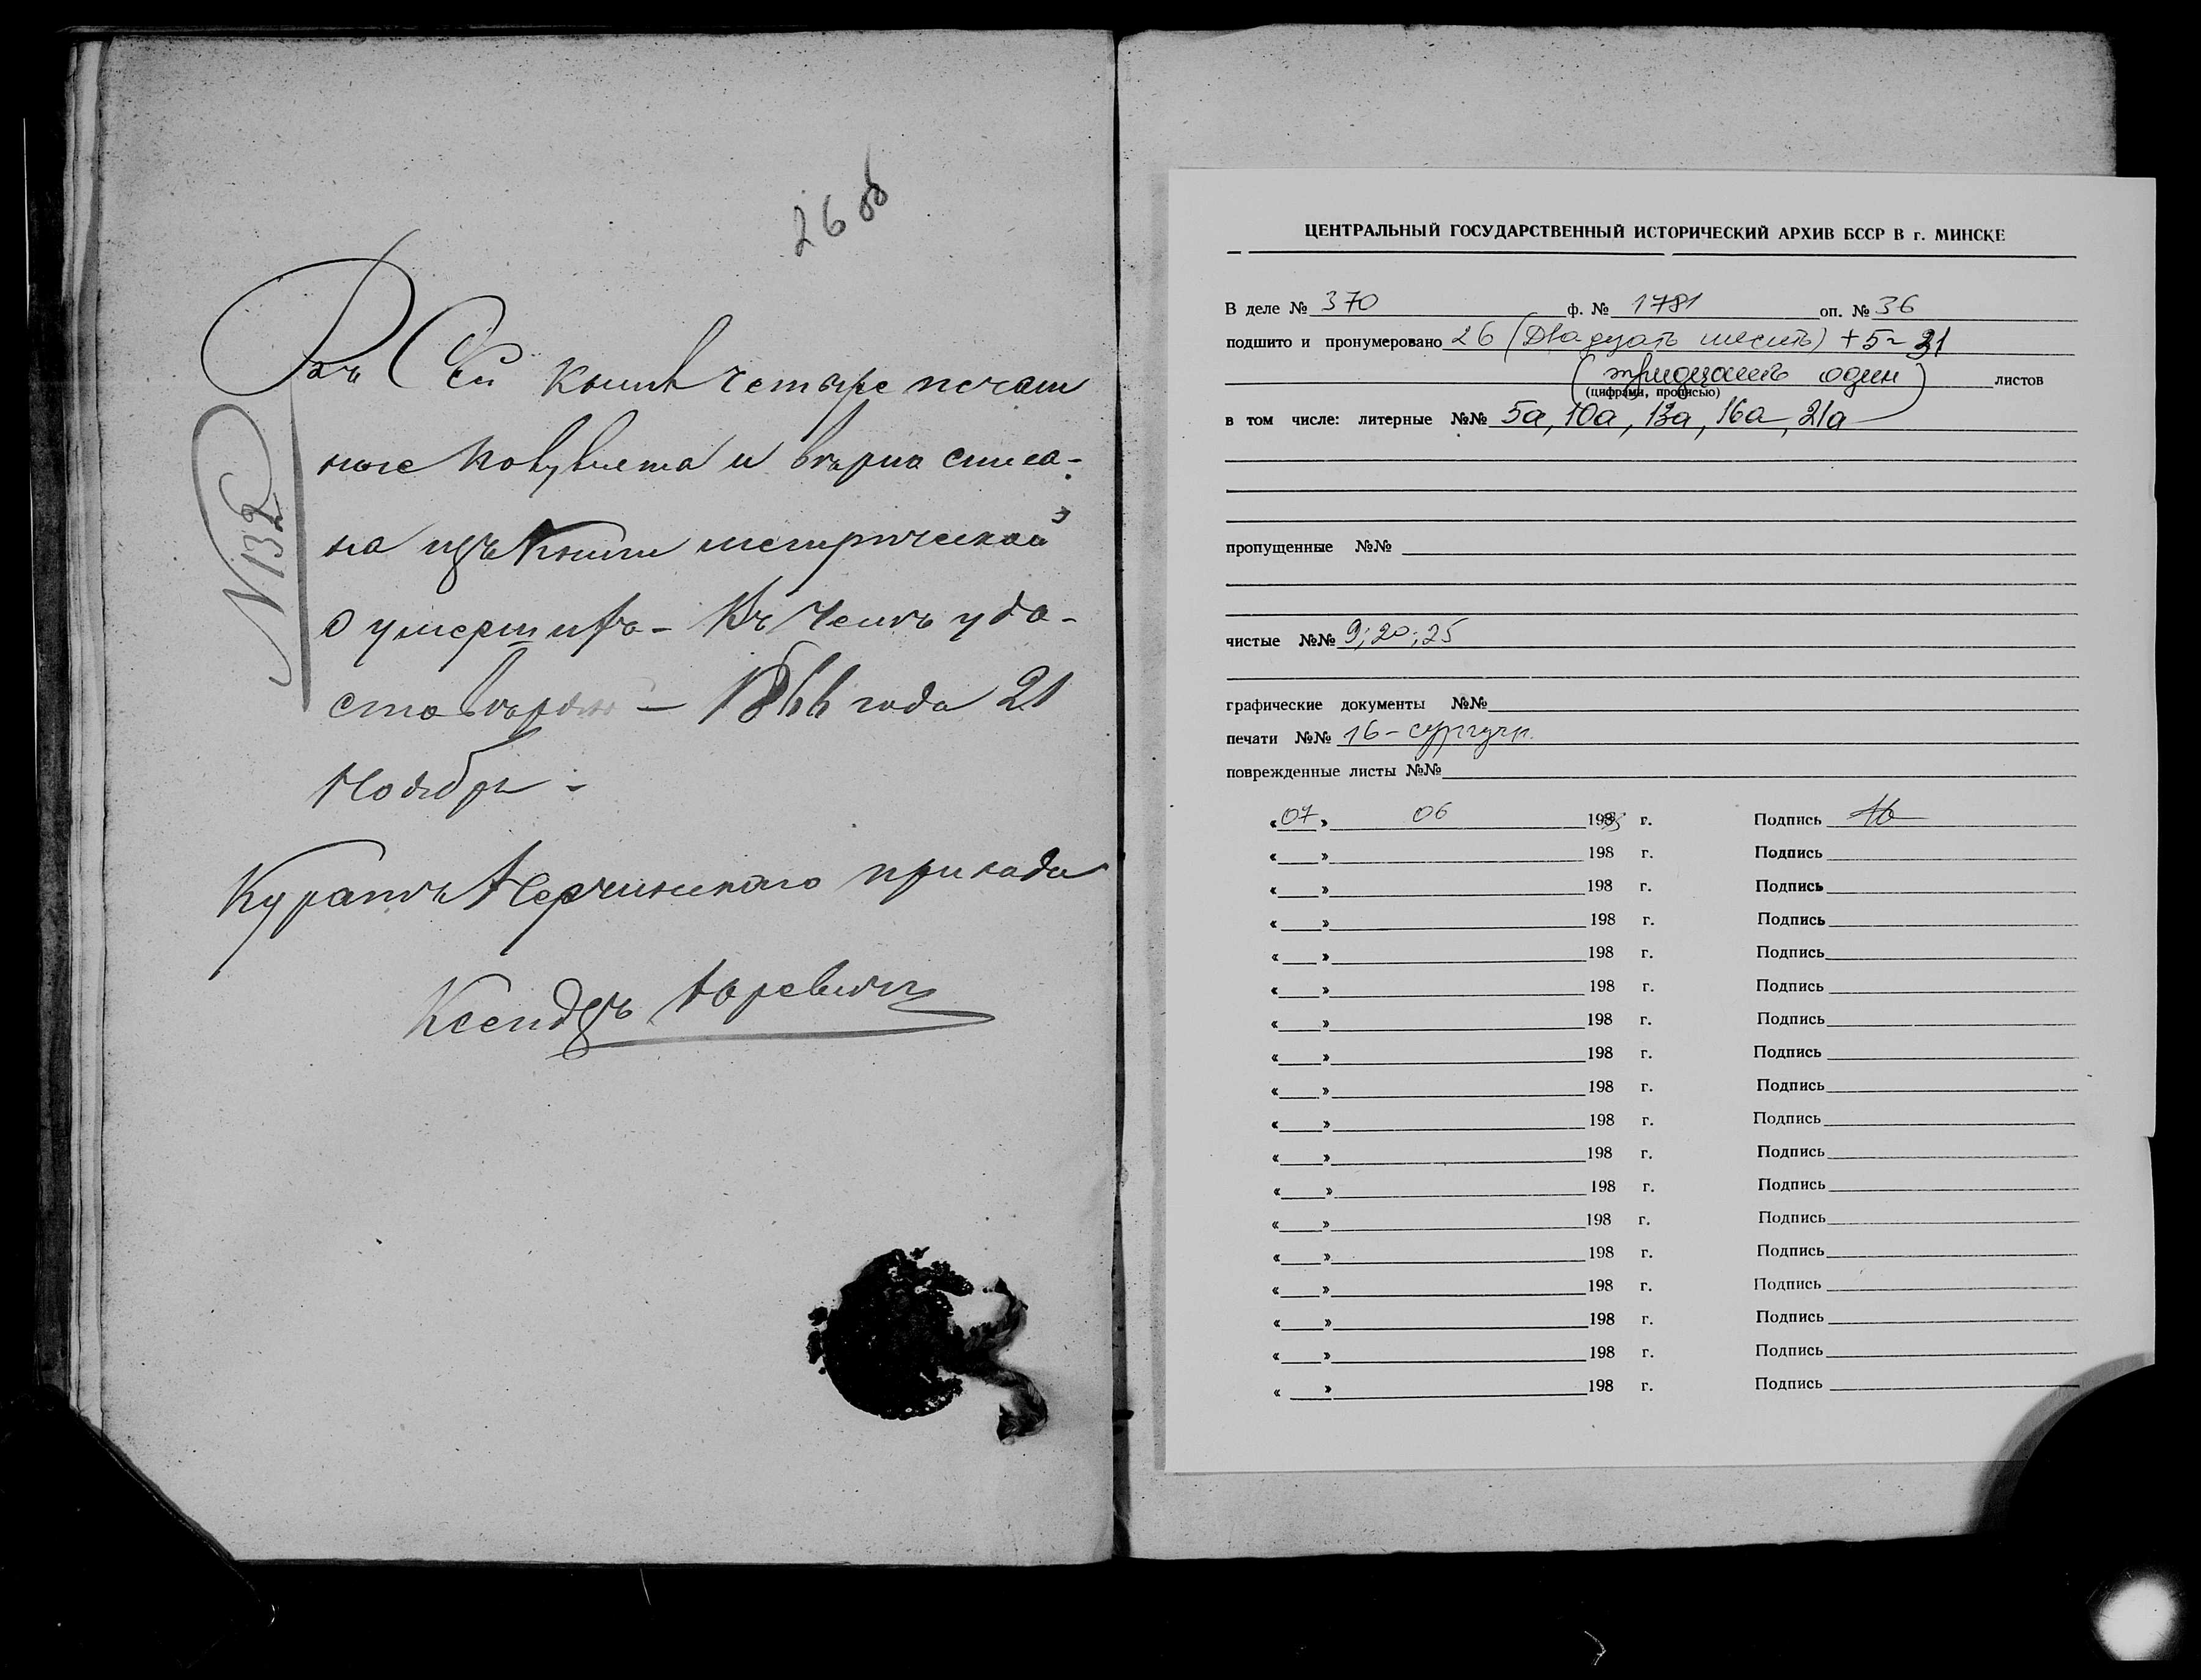 26 об
№ 132
Въ Сей книгѣ четыре печат
ные полулиста и вѣрно списа-
на изъ Книги метрической
о умершихъ – Въ чемъ удо-
стовѣряю – 1866 года 21
Ноября –
Куратъ прихода
Ксендзъ Юревичъ
ЦЕНТРАЛЬНЫЙ ГОСУДАРСТВЕННЫЙ ИСТОРИЧЕСКИЙ АРХИВ БССР В г. МИНСКЕ
В деле № 370 ф. № 1781 оп. № 36
подшито и пронумеровано 26 (Двадцать шесть) + 5 = 31
(тридцать один) листов
(цифрами, прописью)
в том числе: литерные №№ 5а, 10а, 13а, 16а, 21а
пропущенные №№
чистые №№ 9; 20; 25
графические документы №№
печати №№ 16 – сургучн.
поврежденные листы №№
«07» 06 198 г. Подпись
« » 198 г. Подпись
« » 198 г. Подпись
« » 198 г. Подпись
« » 198 г. Подпись
« » 198 г. Подпись
« » 198 г. Подпись
« » 198 г. Подпись
« » 198 г. Подпись
« » 198 г. Подпись
« » 198 г. Подпись
« » 198 г. Подпись
« » 198 г. Подпись
« » 198 г. Подпись
« » 198 г. Подпись
« » 198 г. Подпись
« » 198 г. Подпись
« » 198 г. Подпись